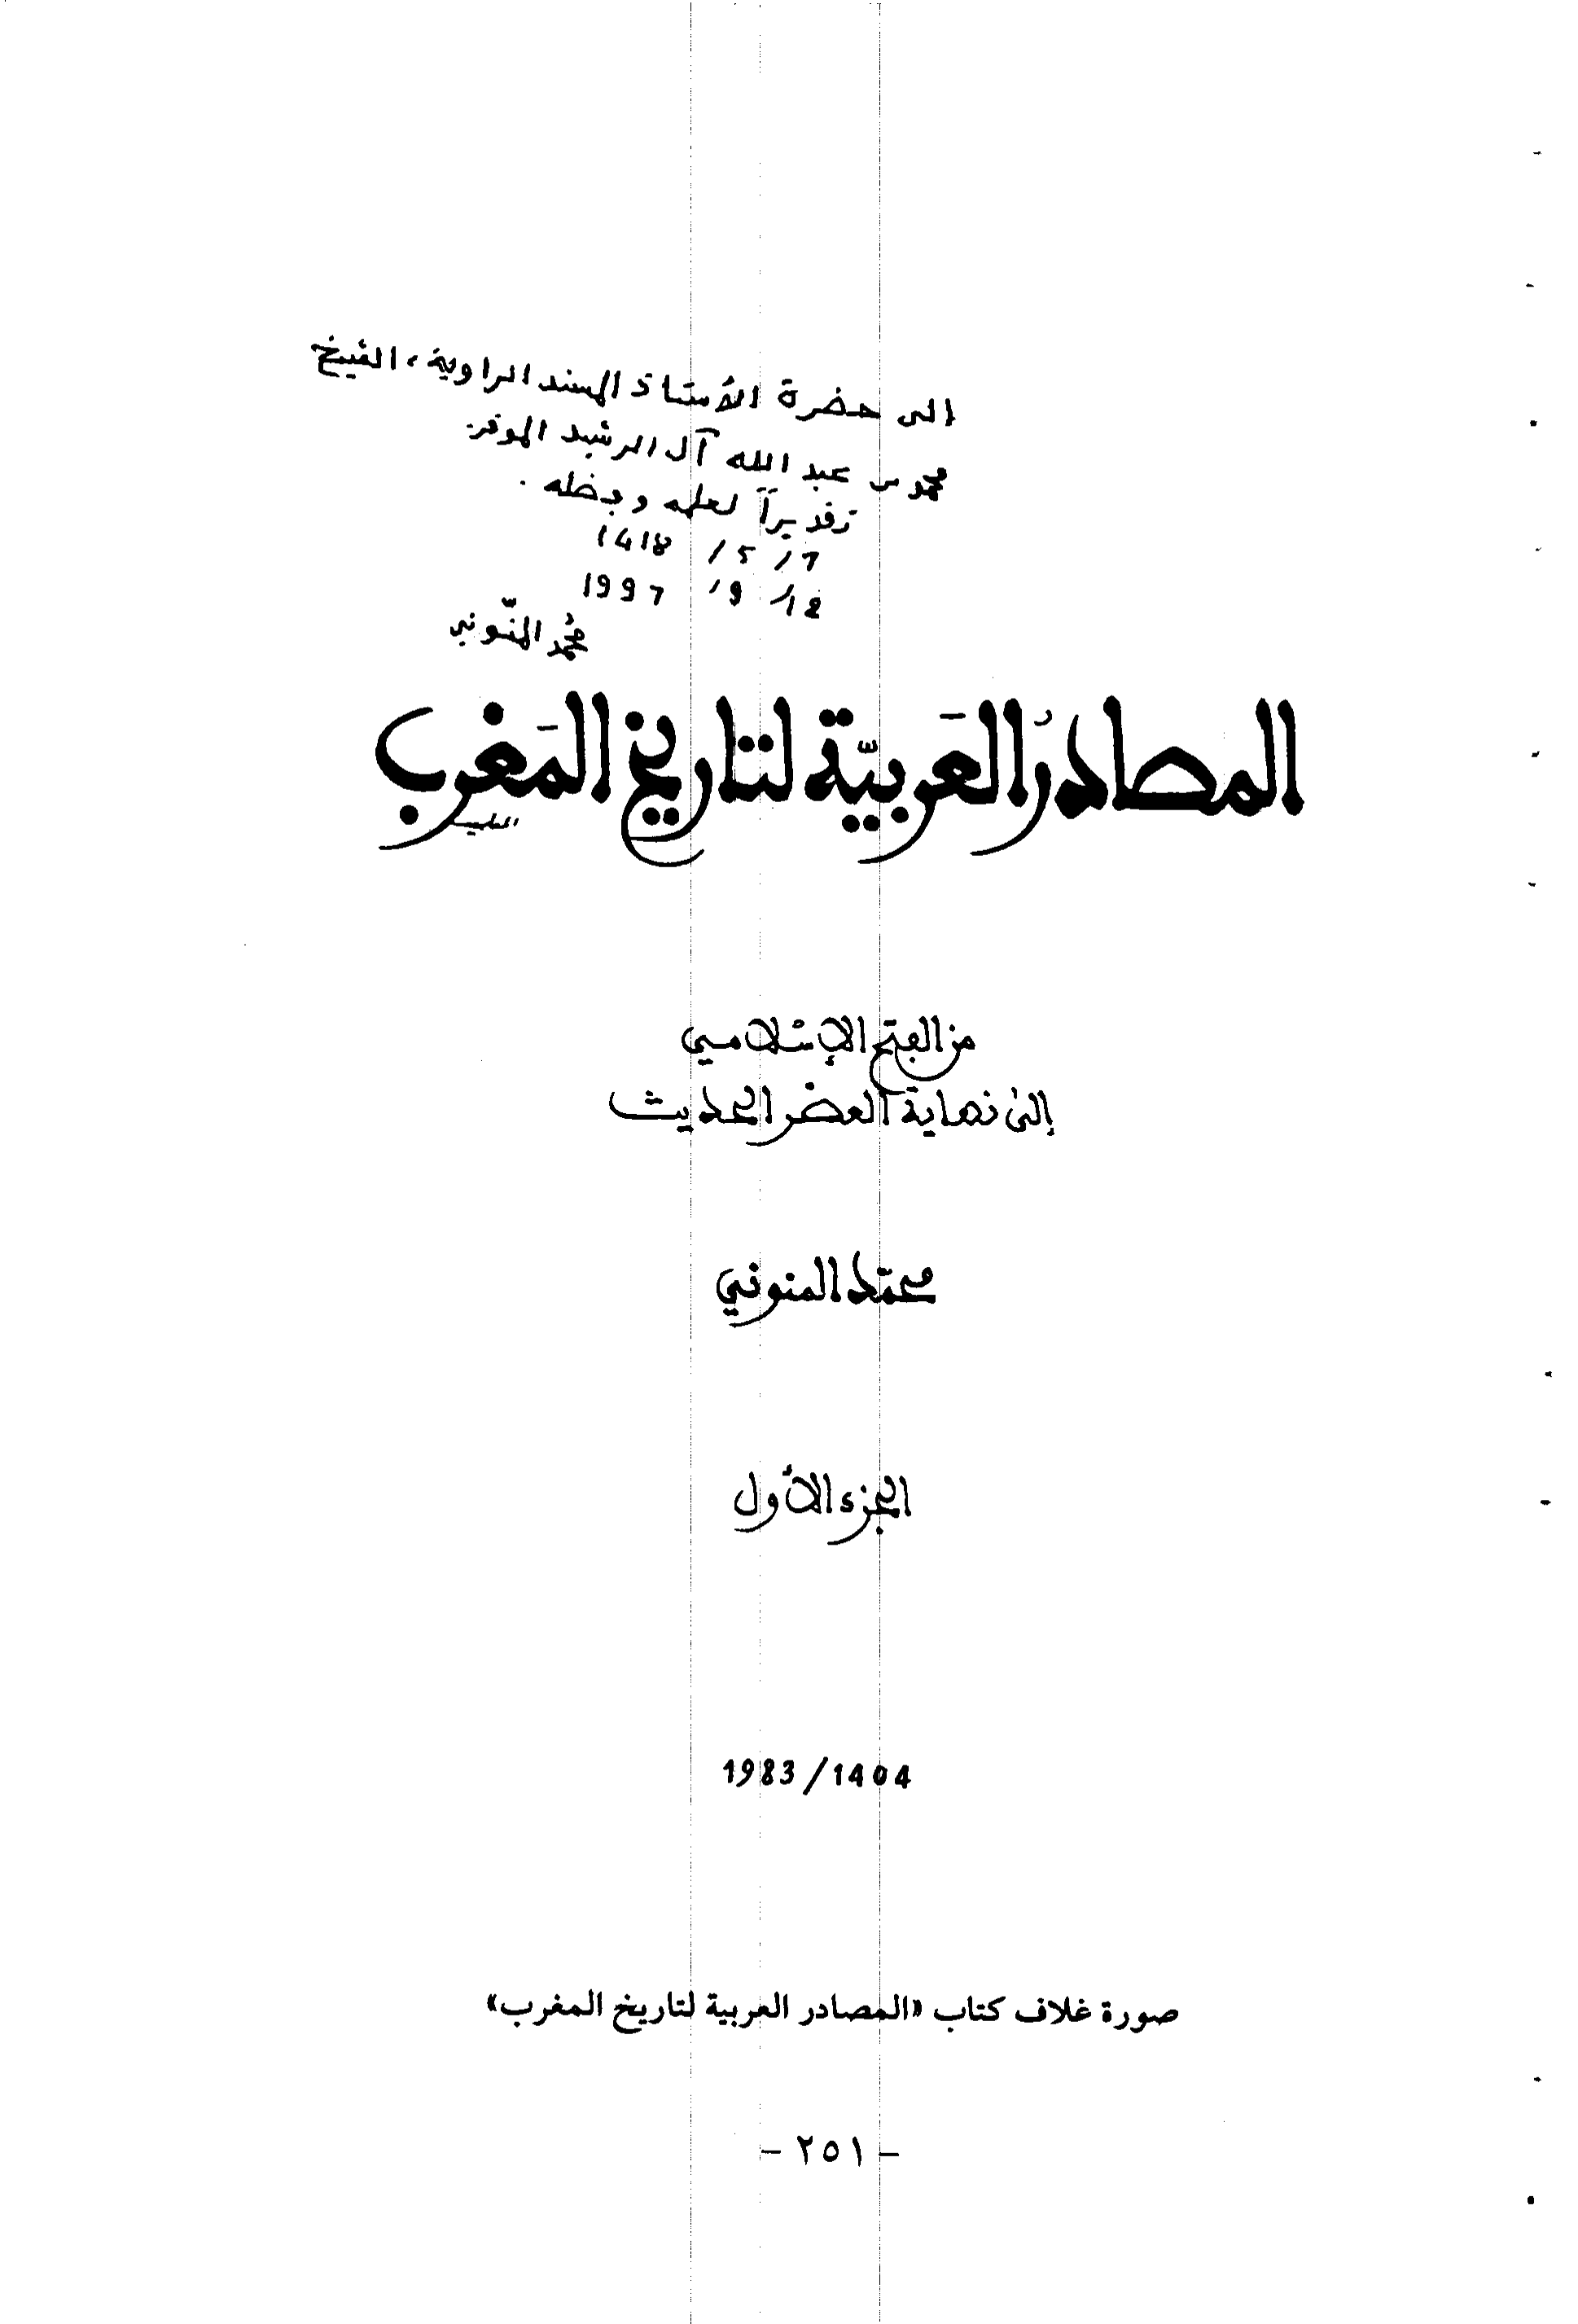 إلى حضرة الأستاذ المسند الراوية، الشيخ
محمد بن عبد الله آل الرشيد الموقر.
تقديراً لعلمه وفضله.
7 / 5 / 1418
12 / 9 / 1997
محمد المنّوني
المصادرُ العَربيّة لتاريخ المَغرب
من الفتح الإسْلامي
إلىٰ نهاية العصر الحديث
محمّد المنوني
الجزء الأول
1983/1404
صورة غلاف كتاب «المصادر العربية لتاريخ المغرب»
- ٢٥١ -